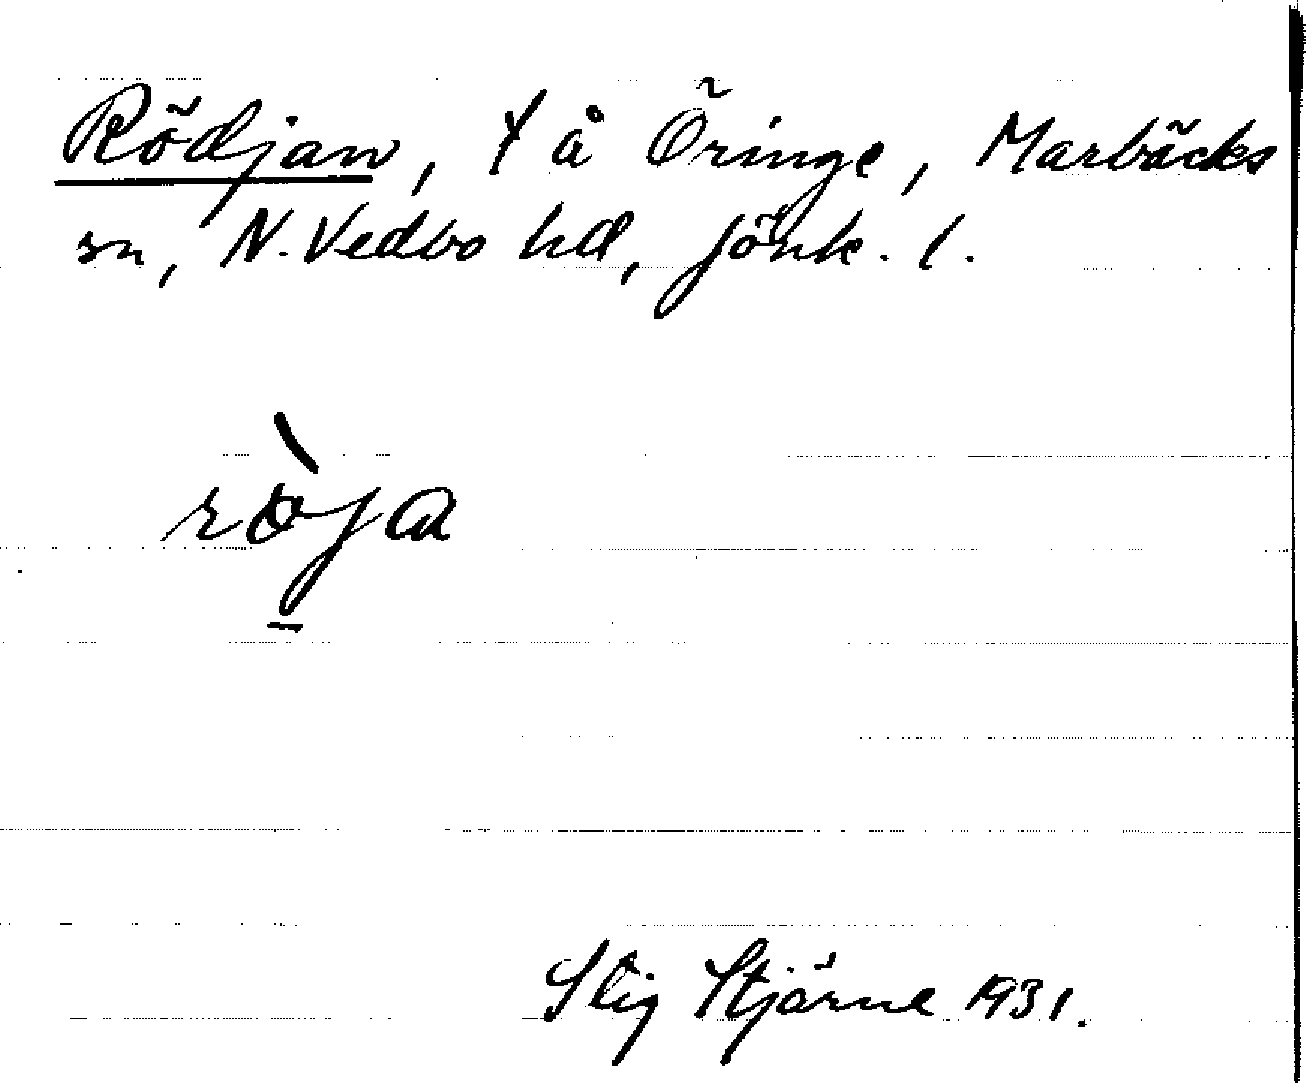 Rödjan, t å Öringe, Marbäcks
sn, N. Vedbo hd, Jönk. l.
röja
Stig Stjärne 1931.